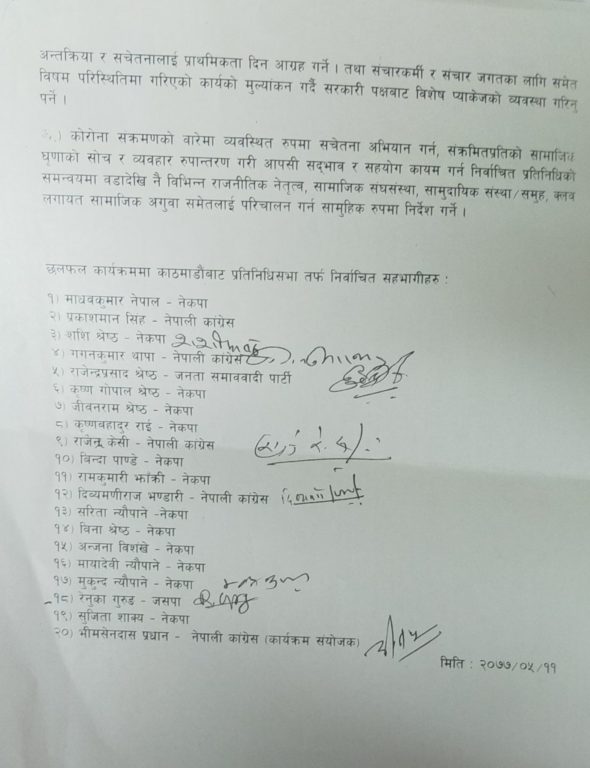 अन्तक्रिया र सचेतनालाई प्राथमिकता दिन आग्रह गर्ने । तथा संचारकर्मी र संचार जगतका लागि समेत
विषम परिस्थितिमा गरिएको कार्यको मुल्यांकन गर्दै सरकारी पक्षबाट विशेष प्याकेजको व्यवस्था गरिनु
पर्ने ।
कोरोना सक्रमणको वारेमा व्यवस्थित रुपमा सचेतना अभियान गर्न, संक्रमितप्रतिको सामाजिक
घृणाको सोच र व्यवहार रुपान्तरण गरी आपसी सद्भाव र सहयोग कायम गर्न निर्वाचित प्रतिनिधिको
समन्वयमा वडादेखि नै विभिन्न राजनीतिक नेतृत्व, सामाजिक संघसंस्था, सामुदायिक संस्था/समुह, क्लव
लगायत सामाजिक अगुवा समेतलाई परिचालन गर्न सामुहिक रुपमा निर्देश गर्ने ।
छलफल कार्यक्रममा काठमाडौंबाट प्रतिनिधिसभा तर्फ निर्वाचित सहभागीहरु :
१) माधवकुमार नेपाल - नेकपा
२) प्रकाशमान सिंह - नेपाली कांग्रेस
३) शशि श्रेष्ठ - नेकपा
४) गगनकुमार थापा - नेपाली कांग्रेस
५) राजेन्द्रप्रसाद श्रेष्ठ - जनता समाववादी पार्टी
६) कृष्ण गोपाल श्रेष्ठ - नेकपा
७) जीवनराम श्रेष्ठ - नेकपा
८) कृष्णबहादुर राई - नेकपा
९) राजेन्द्र केसी - नेपाली कांग्रेस
१०) बिन्दा पाण्डे - नेकपा
११) रामकुमारी झाँक्री - नेकपा
१२) दिव्यमणीराज भण्डारी - नेपाली कांग्रेस
१३) सरिता न्यौपाने -नेकपा
१४) विना श्रेष्ठ - नेकपा
१५) अन्जना विशंखे - नेकपा
१६) मायादेवी न्यौपाने - नेकपा
१७) मुकुन्द न्यौपाने - नेकपा
१८) रेनुका गुरुङ - जसपा
१९) सुजिता शाक्य - नेकपा
२०) भीमसेनदास प्रधान - नेपाली कांग्रेस (कार्यक्रम संयोजक)
मिति : २०७७/०५/११